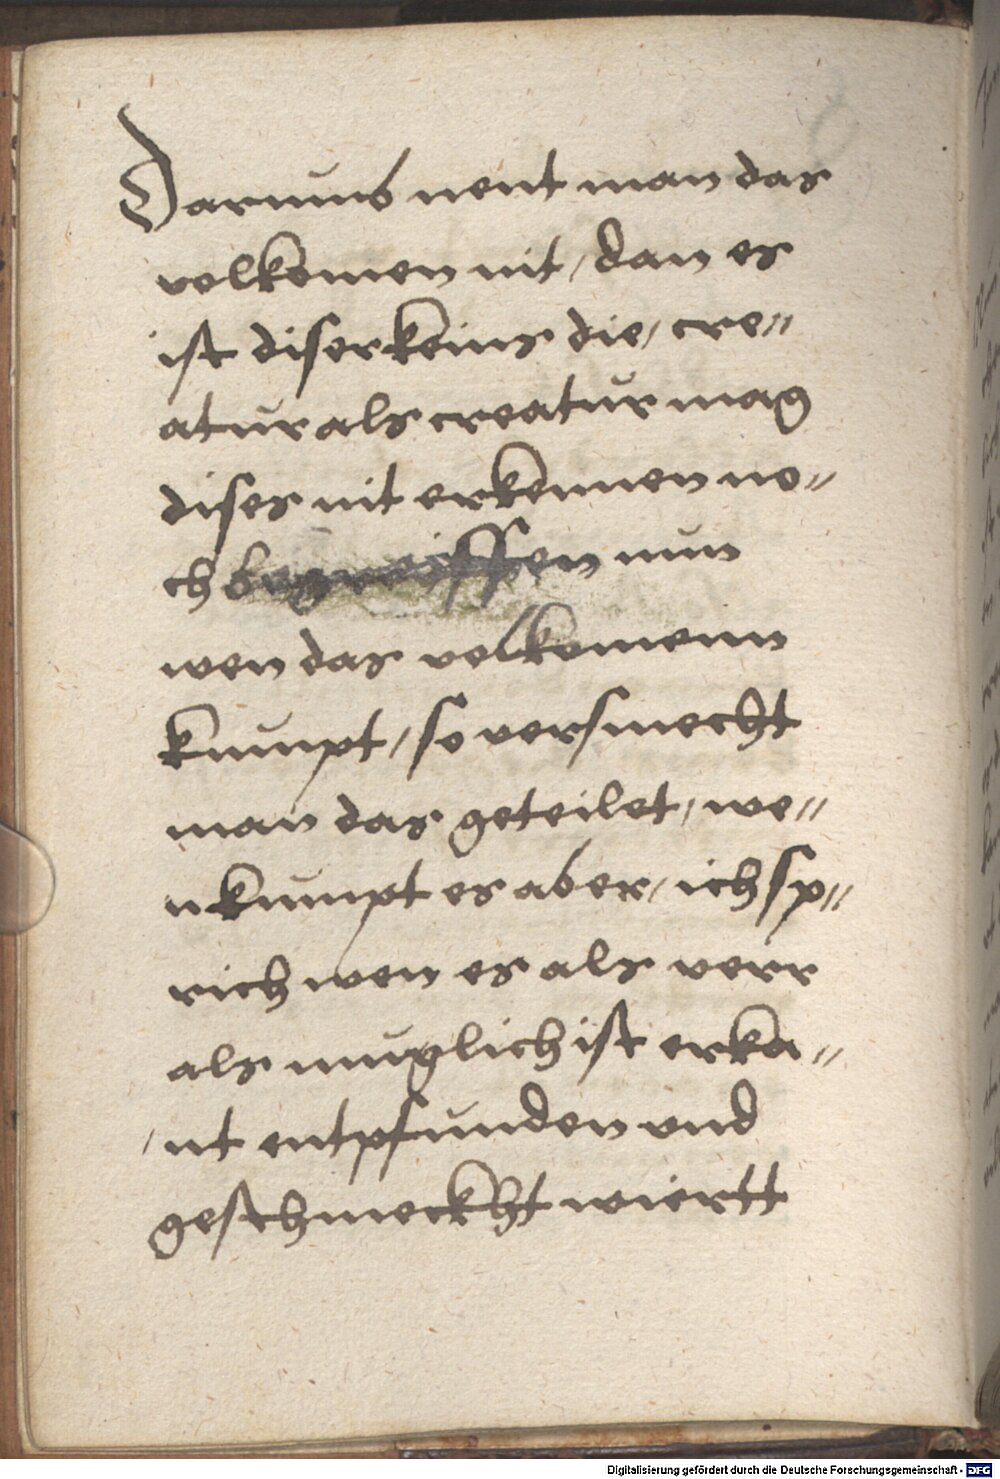 Darumb nent man das
volkomen nit / dan es
ist diser keins die / cre=
atur als creatur mag
dises nit erkennen no=
ch begreiffen nun
wen das volkomenn
kumpt / so versmecht
man das geteilet / we=
n kumpt es aber / ich sp=
rich wen es als verr
als muglich ist erka=
/ nt entpfunden vnd
geschmeckht wiertt
Digitalisierung gefördert durch die Deutsche Forschungsgemeinschaft - DFG